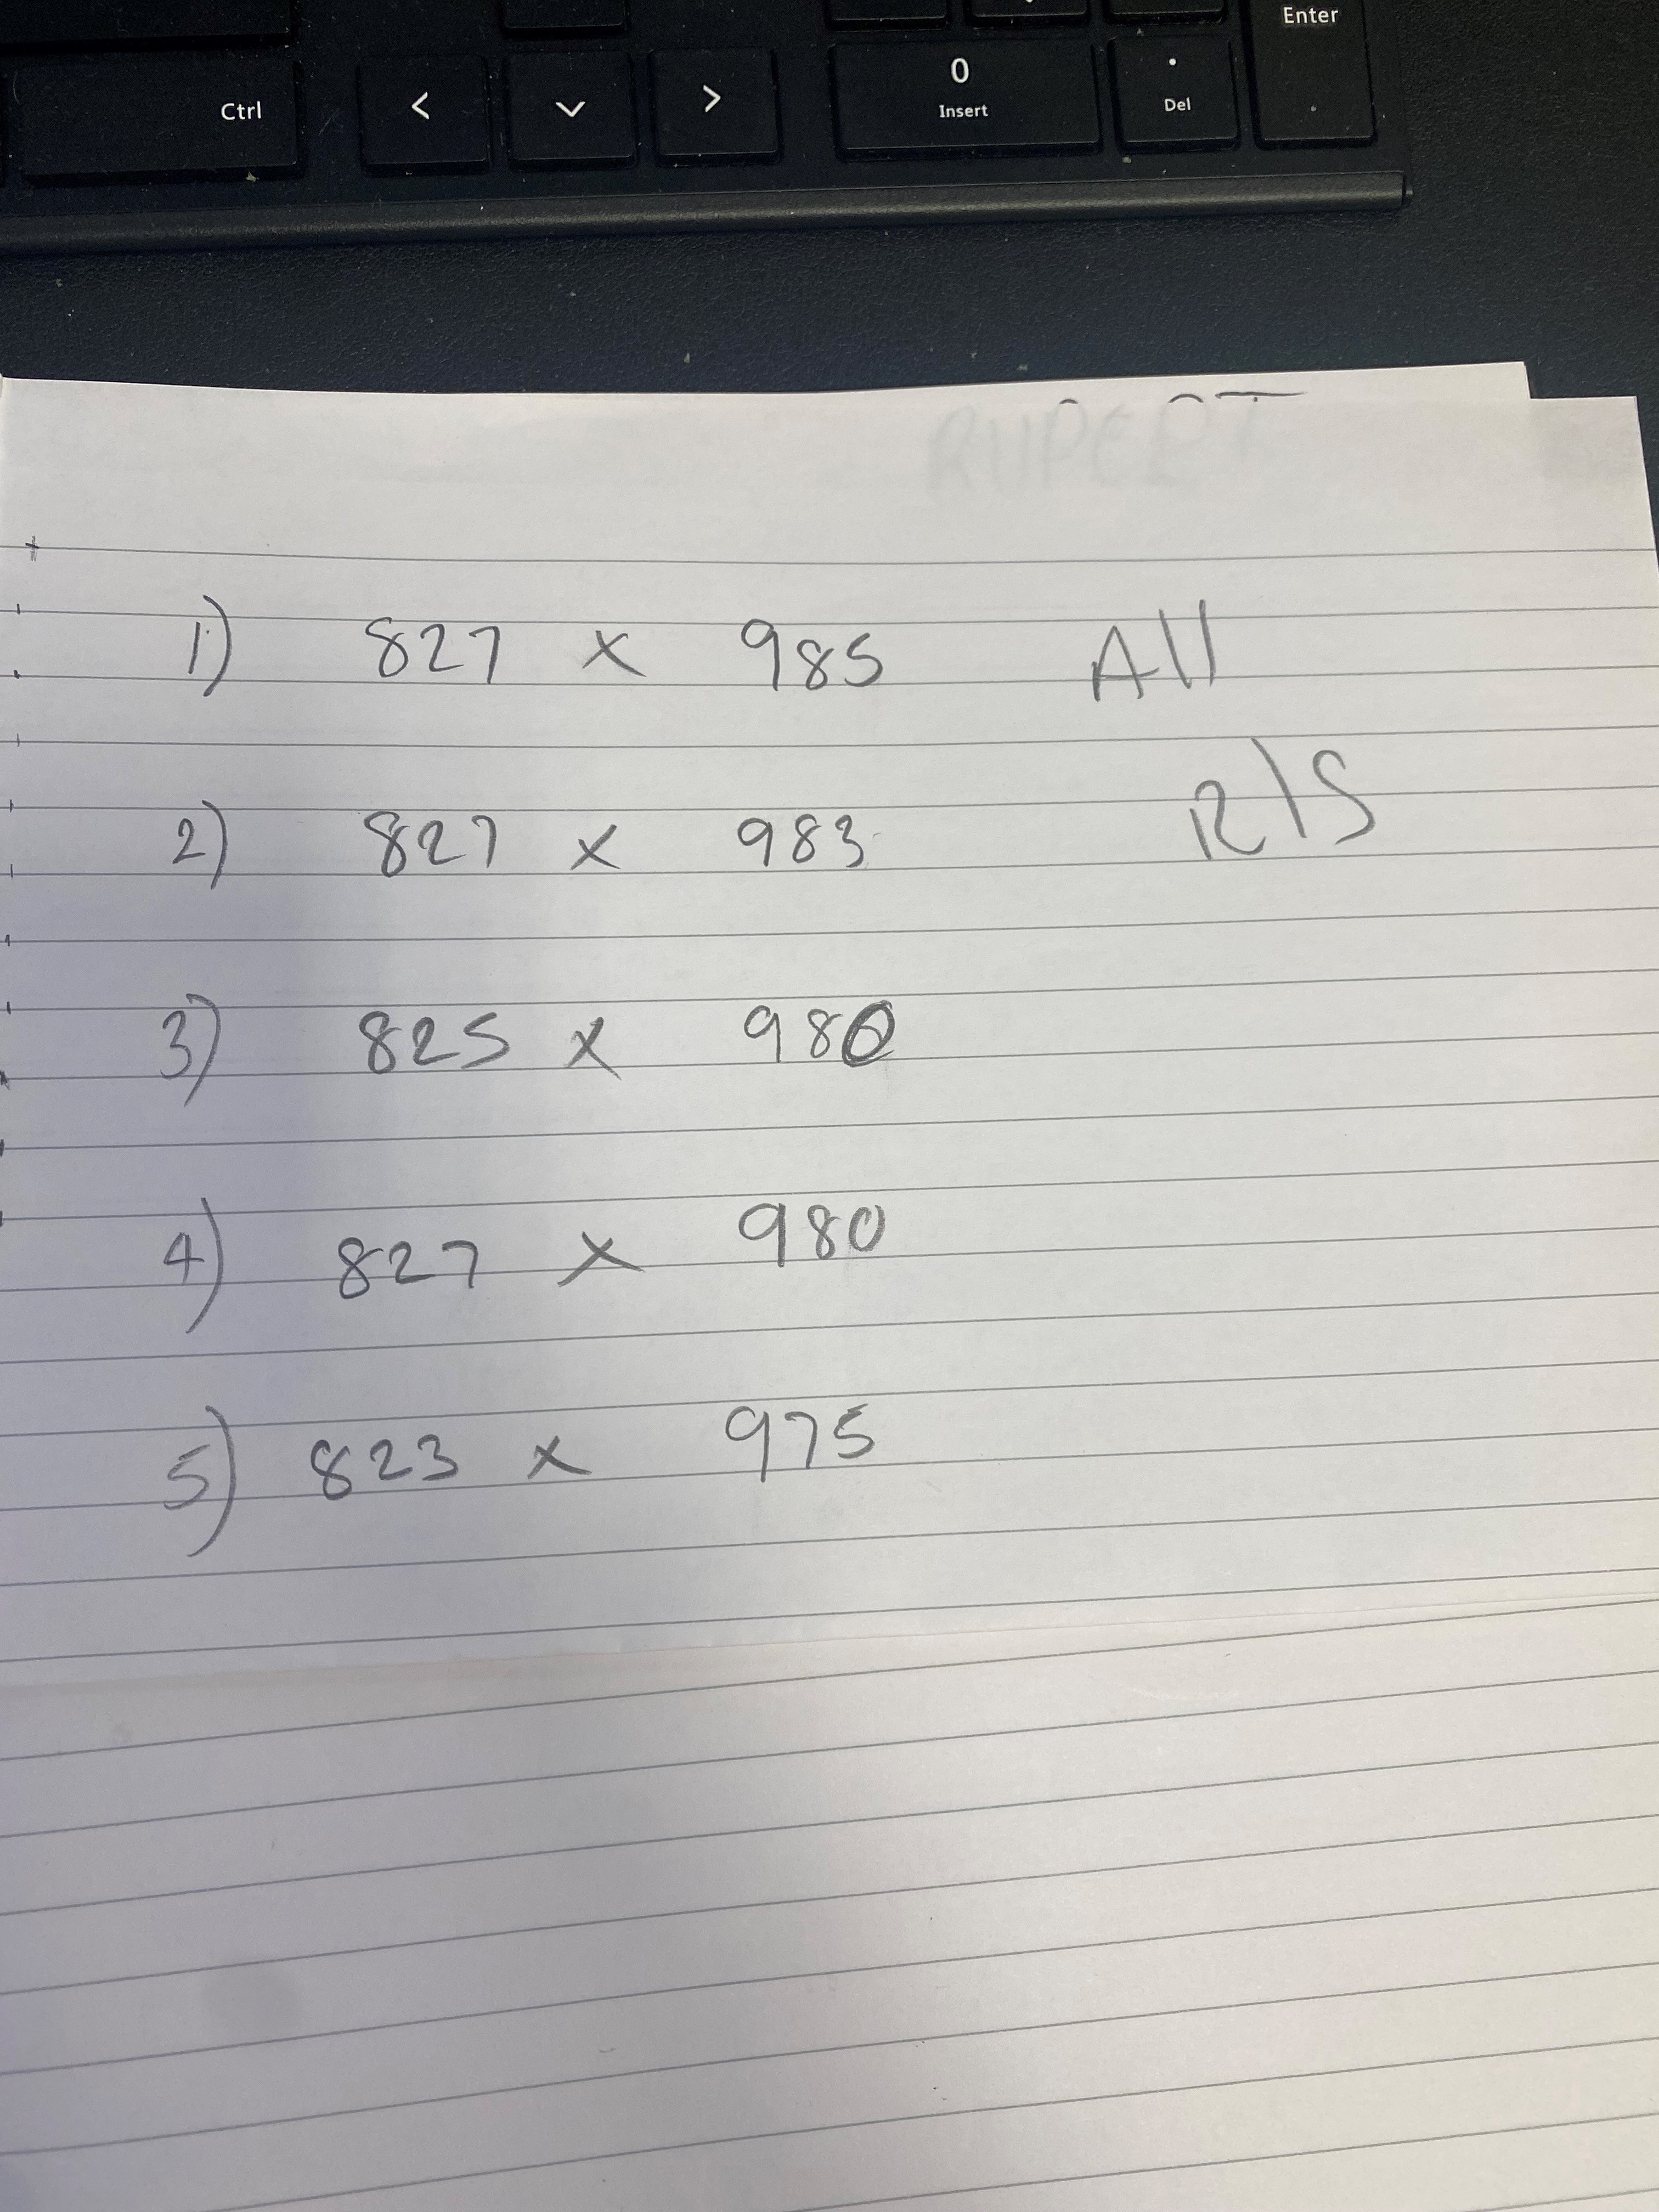 Enter
Ctrl < ∨ > 0 Insert . Del
RUPERT
1) 827 x 985 All
R/S
2) 827 x 983
3) 825 x 980
4) 827 x 980
5) 823 x 975